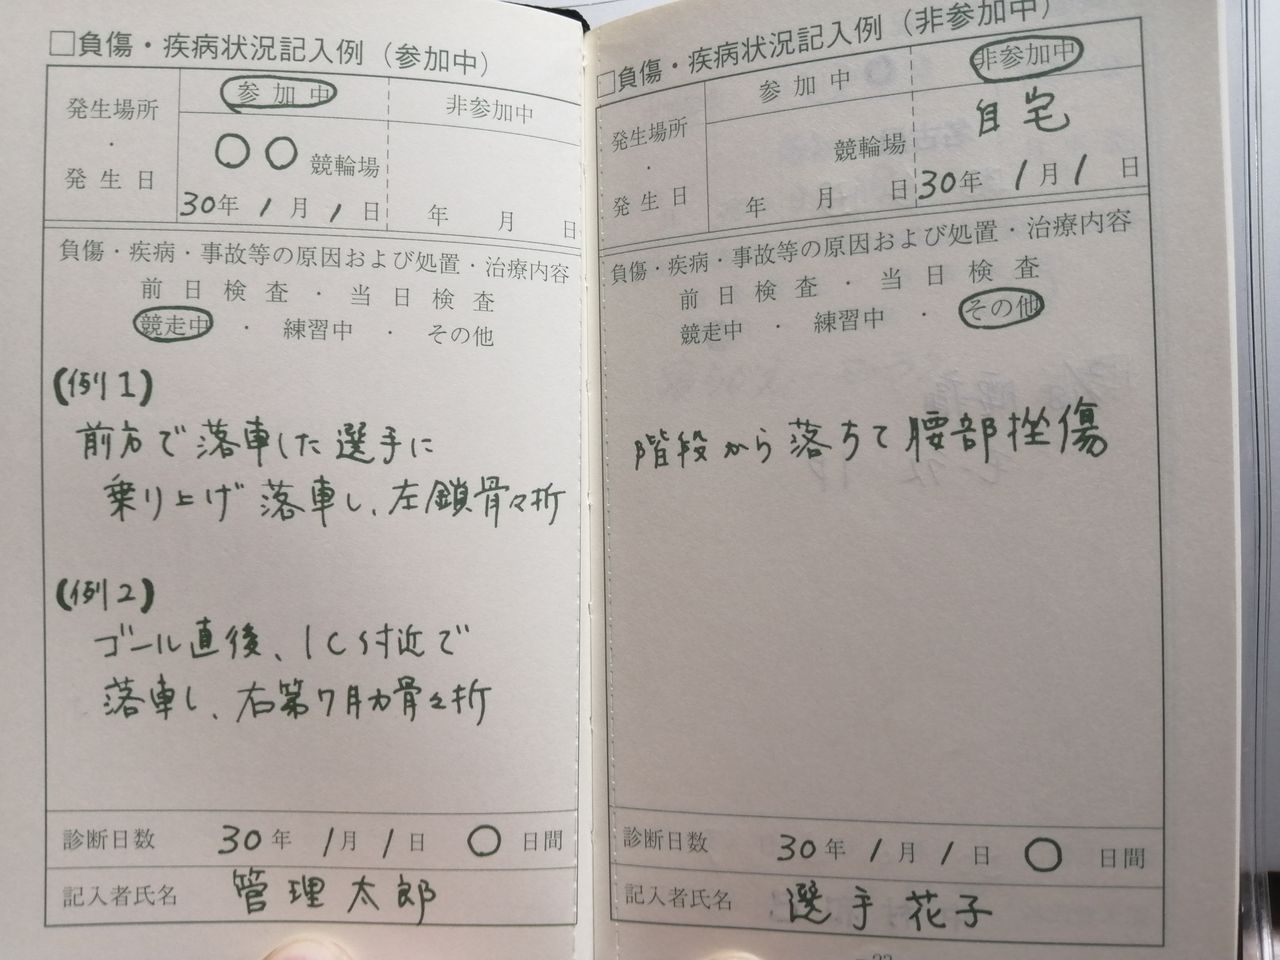 □負傷・疾病状況記入例（参加中）
発生場所・発生日
参加中
非参加中
○○競輪場
30年1月1日
年 月 日
負傷・疾病・事故等の原因および処置・治療内容
前日検査・当日検査
競走中・練習中・その他
(例1)
前方で落車した選手に
乗り上げ落車し、左鎖骨々折
(例2)
ゴール直後、1CS付近で
落車し、右第7肋骨々折
診断日数 30年1月1日 ○日間
記入者氏名 管理太郎
□負傷・疾病状況記入例（非参加中）
発生場所・発生日
参加中
非参加中
競輪場
自宅
年 月 日
30年1月1日
負傷・疾病・事故等の原因および処置・治療内容
前日検査・当日検査
競走中・練習中・その他
階段から落ちて腰部挫傷
診断日数 30年1月1日 ○日間
記入者氏名 選手花子